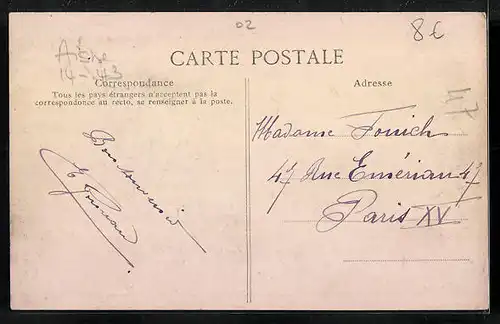 02
8€
Aisne
CARTE POSTALE
Correspondance
Adresse
Tous les pays étrangers n'acceptent pas la
correspondance au recto, se renseigner à la poste.
Bon souvenir
Madame
47 Rue Emériau 47
Paris XV